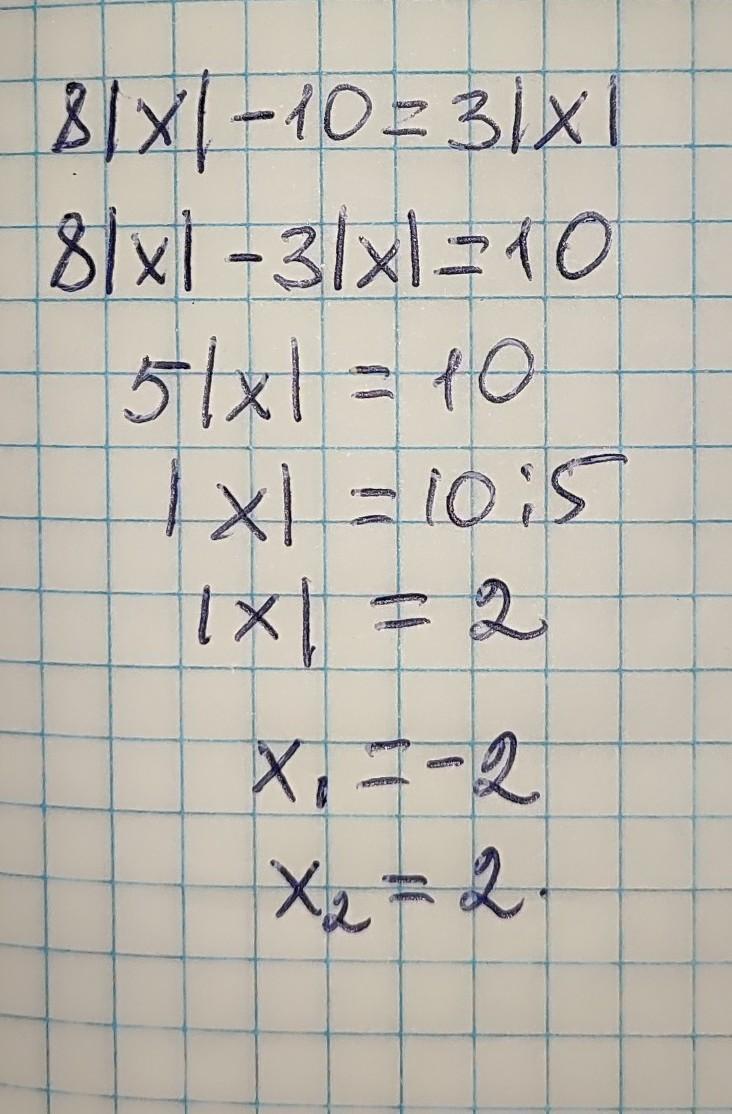 8|x| - 10 = 3|x|
8|x| - 3|x| = 10
5|x| = 10
|x| = 10:5
|x| = 2
x₁ = -2
x₂ = 2.